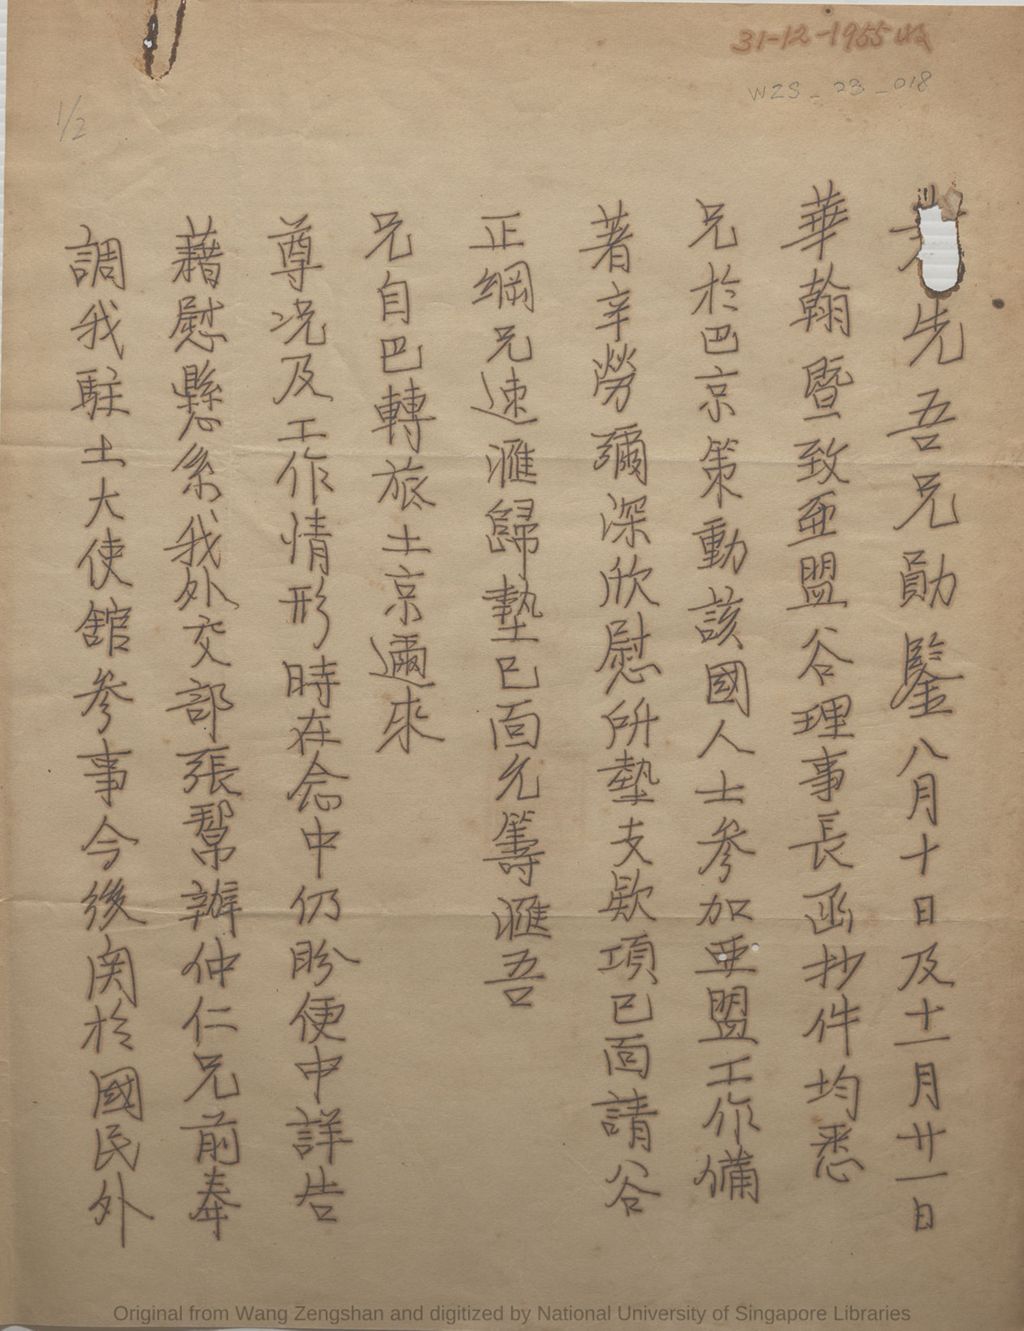 31-12-1955收
WZS_23_018
1/2
先吾兄勛鑒八月十日及十一月廿一日
華翰暨致亜盟谷理事長函抄件均悉
兄於巴京策動該國人士參加亜盟工作備
著辛勞彌深欣慰所墊支欵項已面請谷
正綱兄速滙歸墊已面允籌滙吾
兄自巴轉旅土京邇來
尊况及工作情形時在念中仍盼便中詳告
藉慰懸系我外交部張幫辦仲仁兄前奉
調我駐土大使舘參事今後関於國民外
Original from Wang Zengshan and digitized by National University of Singapore Libraries